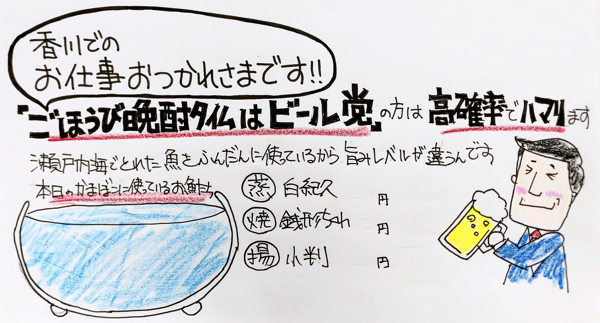 香川での
お仕事おつかれさまです!!
"ごほうび晩酌タイムはビール党"の方は高確率でハマります
瀬戸内海でとれた魚をふんだんに使っているから旨みレベルが違うんです
本日のかまぼこに使っているお魚は
蒸 白紀久 円
焼 銭形ちゃん 円
揚 小判 円